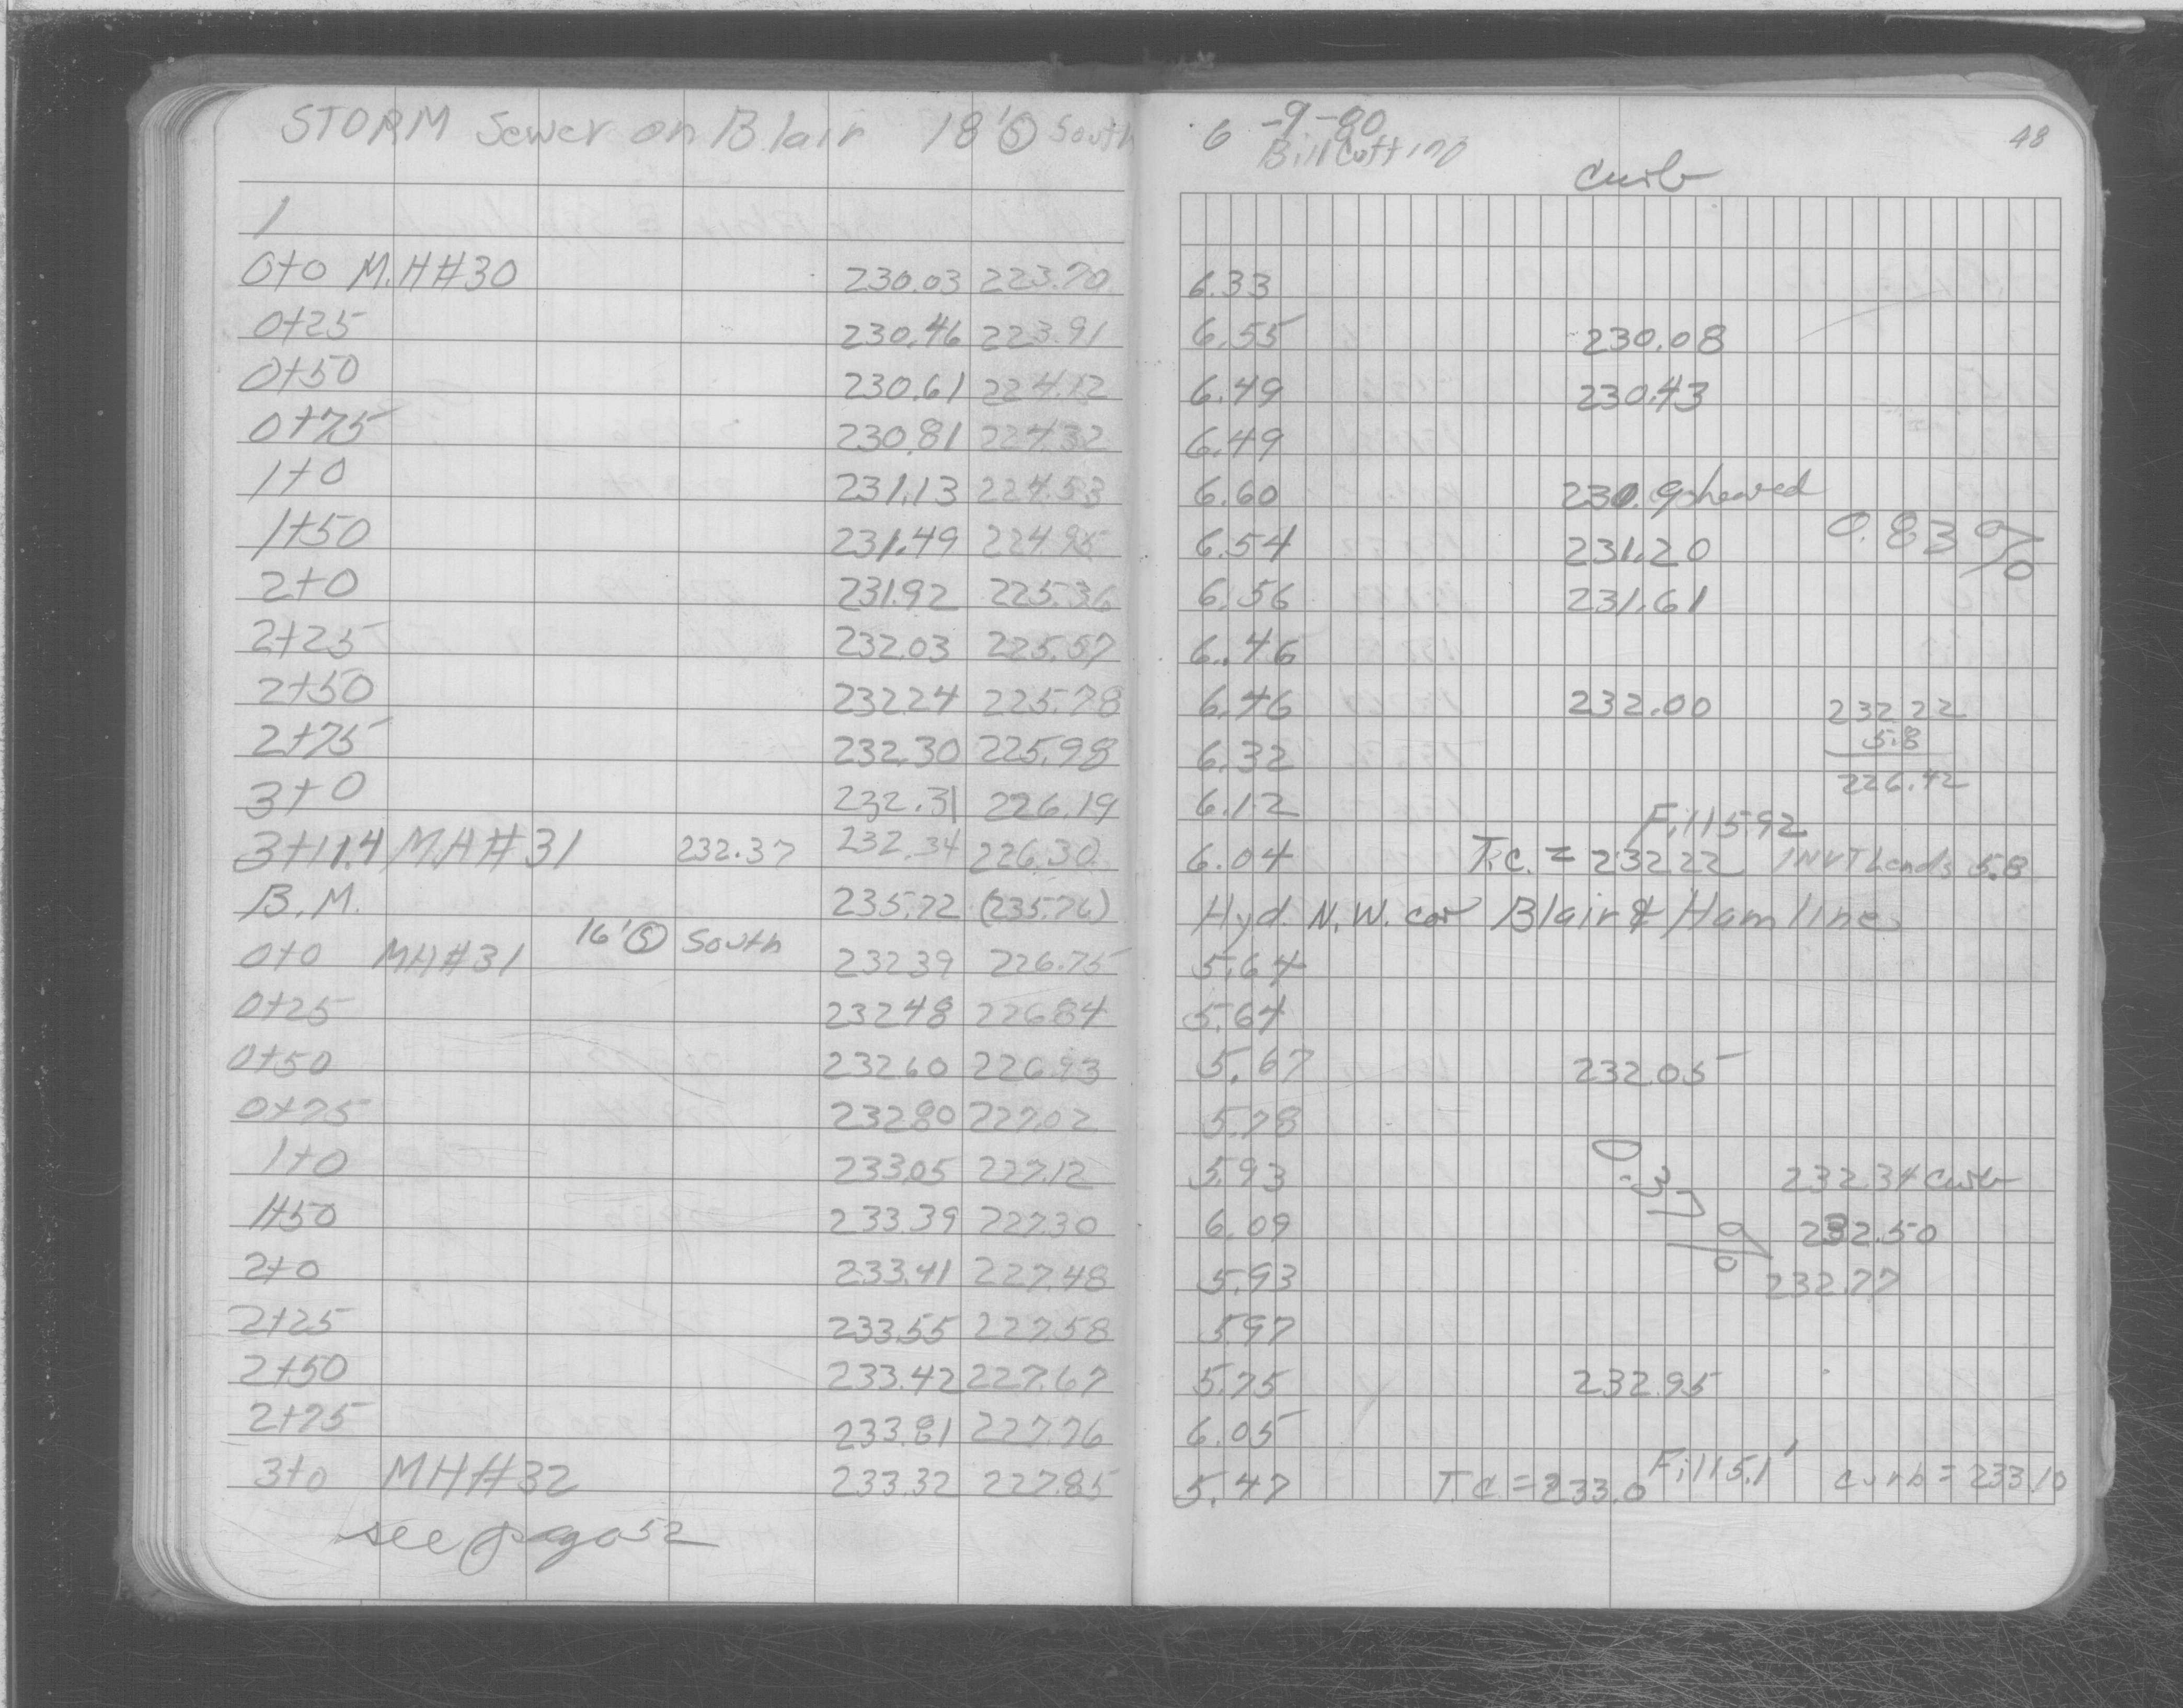 STORM Sewer on Blair 18' Ⓢ South
6-9-80 48
Bill Cutting
curb
1
0+0 M.H#30 230.03 223.70 6.33
0+25 230.46 223.91 6.55 230.08
0+50 230.61 224.12 6.49 230.43
0+75 230.81 224.32 6.49
1+0 231.13 224.53 6.60 230.9 sheared
1+50 231.49 224.95 6.54 231.20 0.83%
2+0 231.92 225.36 6.56 231.61
2+25 232.03 225.57 6.46
2+50 232.24 225.78 6.46 232.00 232.22
5.8
2+75 232.30 225.98 6.32 226.42
3+0 232.31 226.19 6.12 Fill 5.92
3+11.4 M.H#31 232.37 232.34 226.30 6.04 T.C. = 232.22 INVT 5.8
B.M. 235.72 (235.76) Hyd. N.W. cor Blair & Hamline
16' Ⓢ South
0+0 MH#31 232.39 226.75 5.64
0+25 232.48 226.84 5.64
0+50 232.60 226.93 5.67 232.05
0+75 232.80 227.02 5.78
1+0 233.05 227.12 5.93 0.37% 232.34 curb
1+50 233.39 227.30 6.09 232.50
2+0 233.41 227.48 5.93 232.77
2+25 233.55 227.58 5.97
2+50 233.42 227.67 5.75 232.95
2+75 233.81 227.76 6.05
3+0 MH#32 233.32 227.85 5.47 T.C. = 233.0 Fill 5.1' curb = 233.10
see page 52